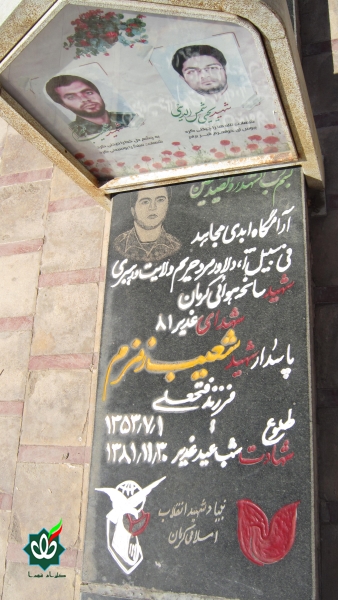 شهید یحیی شمس الدینی
بسم رب الشهداء و الصدیقین
آرامگاه ابدی مجاهد
فی سبیل الله، دلاور مرد حریم ولایت و رهبری
شهید سانحه هوائی کرمان
شهدای غدیر ۸۱
پاسدار شهید شعیب زمزم
فرزند فتحعلی
طلوع ۱۳۵۳/۷/۱
شهادت شب عید غدیر ۱۳۸۱/۱۱/۳۰
بنیاد شهید انقلاب
اسلامی کرمان
گلزار شهدا